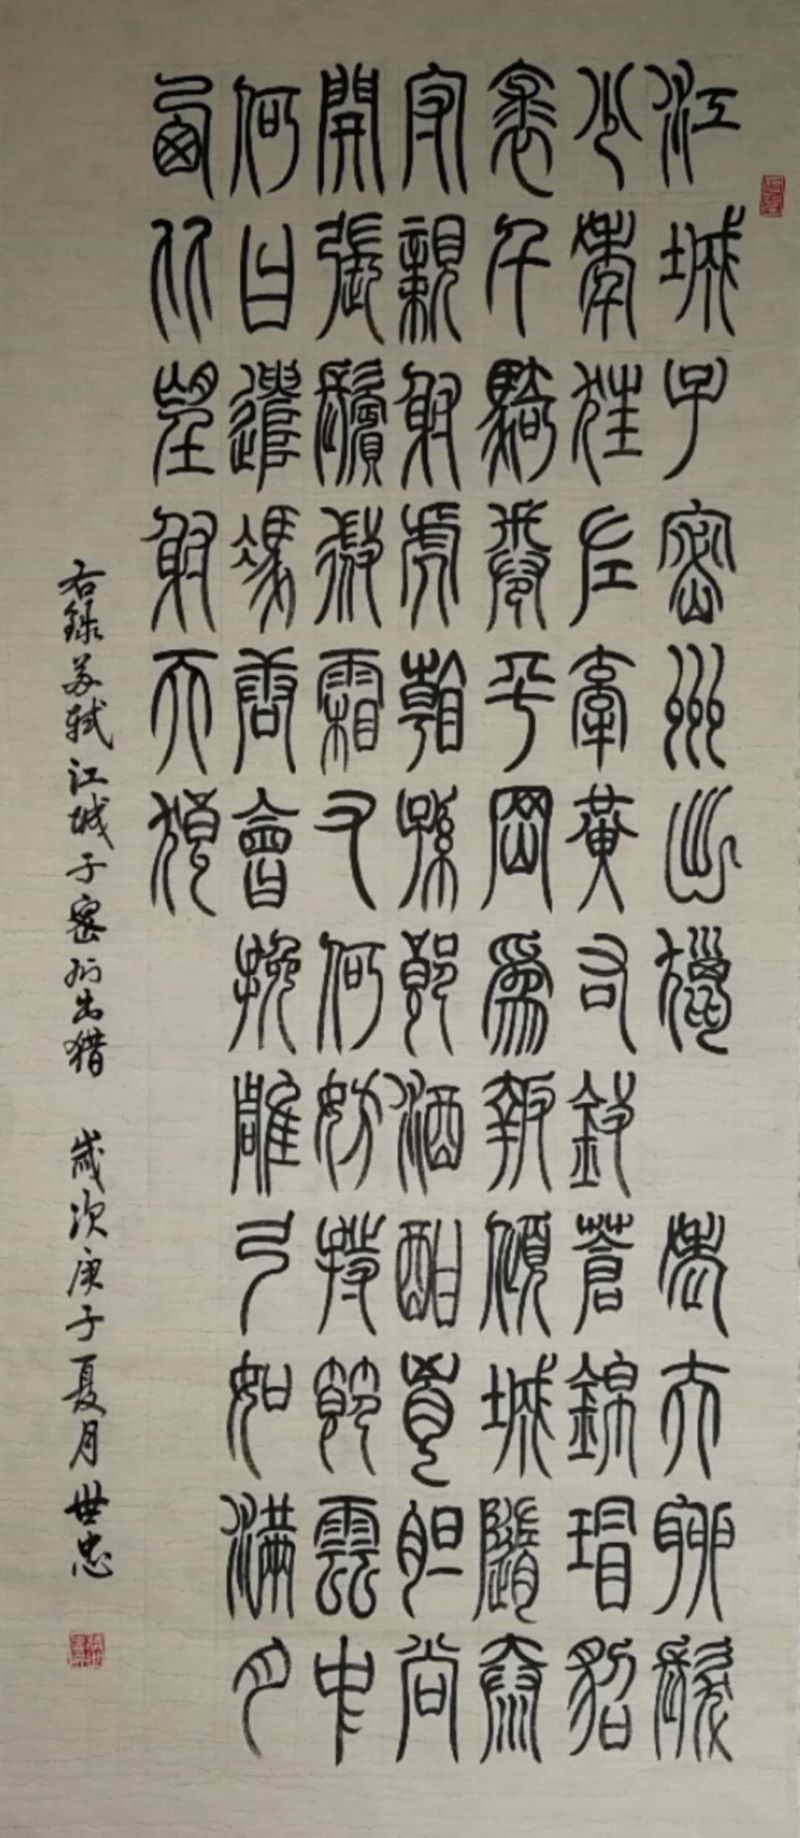 江城子密州出獵 老夫聊發
少年狂左牽黃右擎蒼錦帽貂
裘千騎卷平岡為報傾城隨太
守親射虎看孫郎酒酣胸胆尚
開張鬢微霜又何妨持節雲中
何日遣馮唐會挽雕弓如滿月
西北望射天狼
右録苏軾江城子密州出猎 歲次庚子夏月世忠